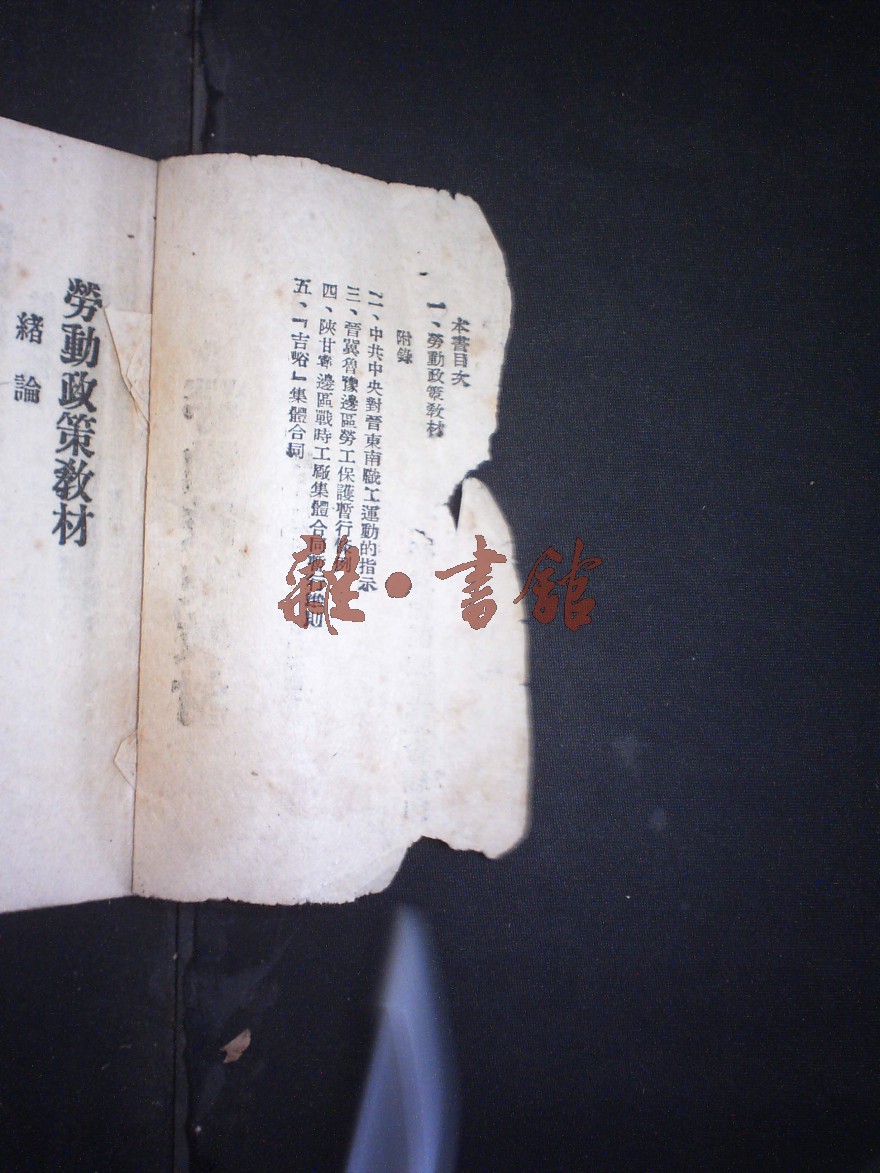 本書目次
一、勞動政策教材
附錄
二、中共中央對晉東南職工運動的指示
三、晉冀魯豫邊區勞工保護暫行條例
四、陝甘寧邊區戰時工廠集體合同暫行準則
五、「吉峪」集體合同
勞動政策教材
緒論
雜·書館